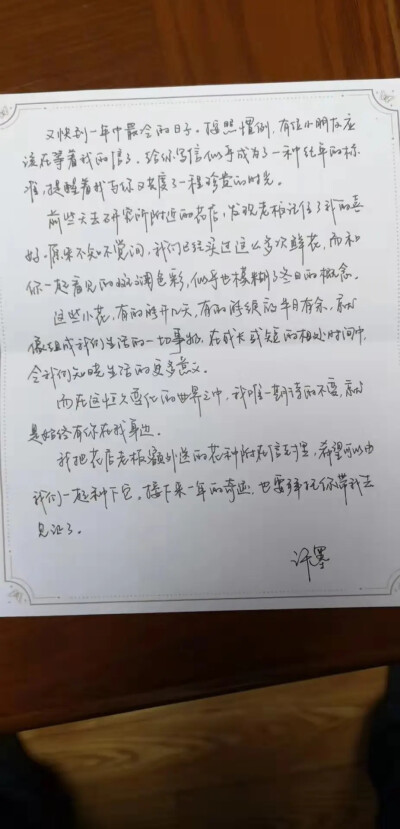 又快到一年中最冷的日子。按照惯例,有位小朋友应
该在等着我的信了。给你写信似乎成为了一种纪年的标
准,提醒着我与你又共度了一程珍贵的时光。
前些天去研究所附近的花店,发现老板记住了我的喜
好。原来不知不觉间,我们已经买过这么多次鲜花,而和
你一起看见的好调色彩,似乎也模糊了冬日的概念。
这些小花,有的盛开几天,有的延续到半月有余,就
像组成我们生活的一切事物,在或长或短的相处时间中,
令我们知晓生活的更多意义。
而在这恒久变化的世界之中,我唯一期待的不变,就
是始终有你在我身边。
我把花店老板额外送的花种附在信封里,希望可以由
我们一起种下它。接下来一年的奇迹,也要拜托你带我去
见证了。
许墨